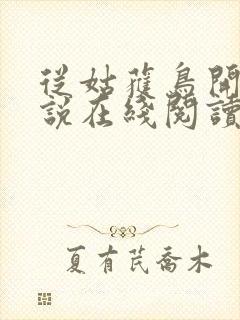 從姑獲鳥開
說在綫閱讀
夏有芪喬木